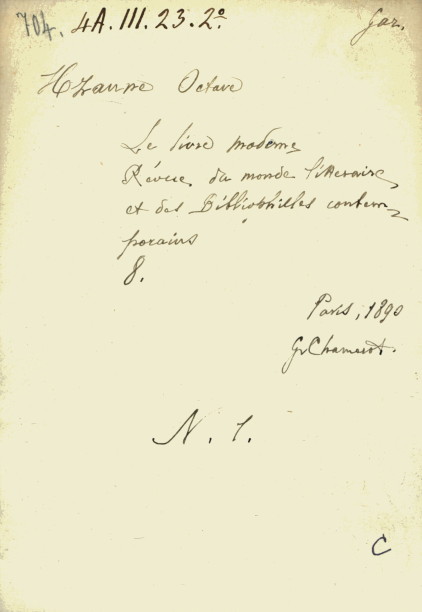 704. 4A. III. 23. 2º. Gaz.
Uzanne Octave
Le livre moderne
Révue du monde litteraire
et des Bibliophiles contem-
porains
8.
Paris, 1890
G. Chamerot.
N. 1.
C